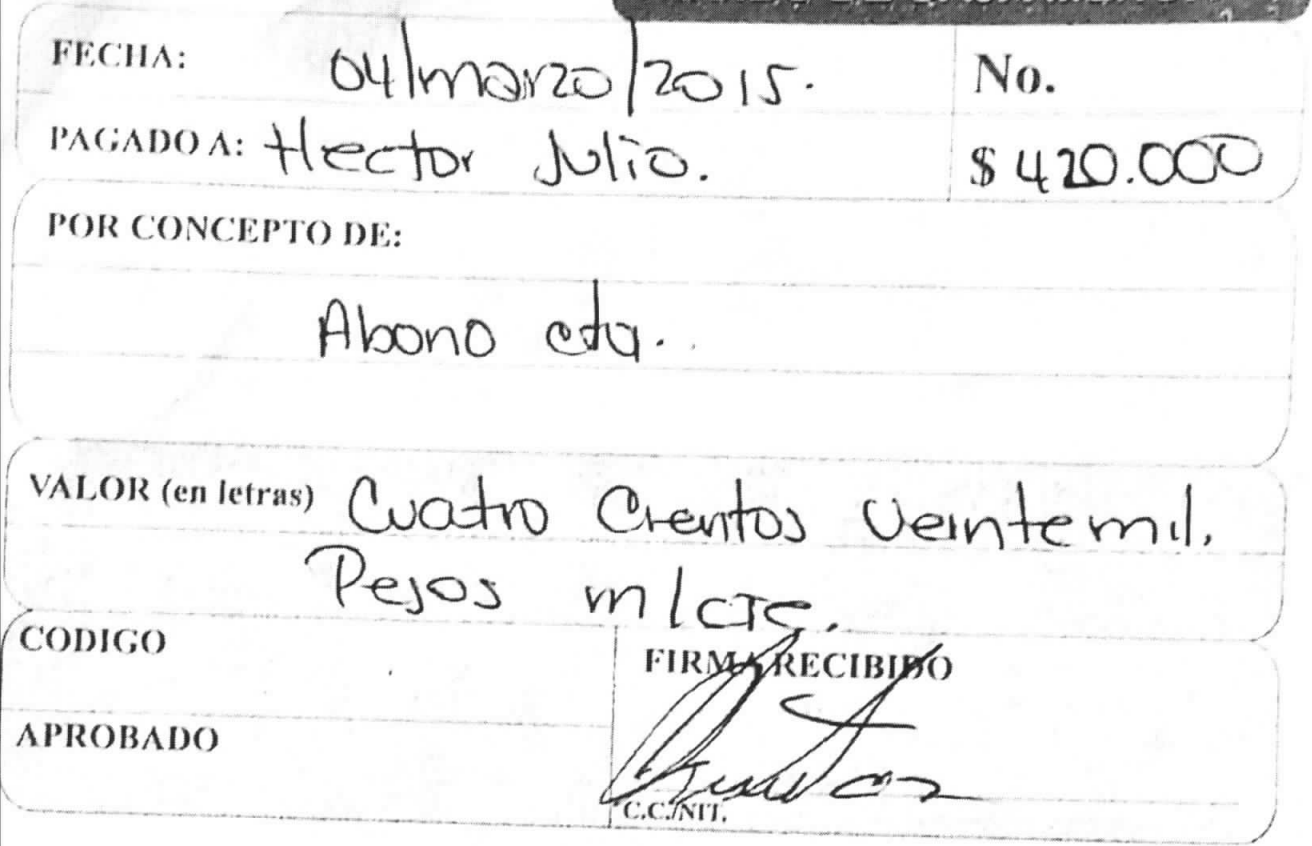 FECHA: 04/marzo/2015. No.
PAGADO A: Hector Julio. $ 420.000
POR CONCEPTO DE:
Abono cta.
VALOR (en letras) Cuatro Cientos Veinte mil.
Pesos m/cte.
CODIGO
FIRMA RECIBIDO
APROBADO
C.C./NIT.